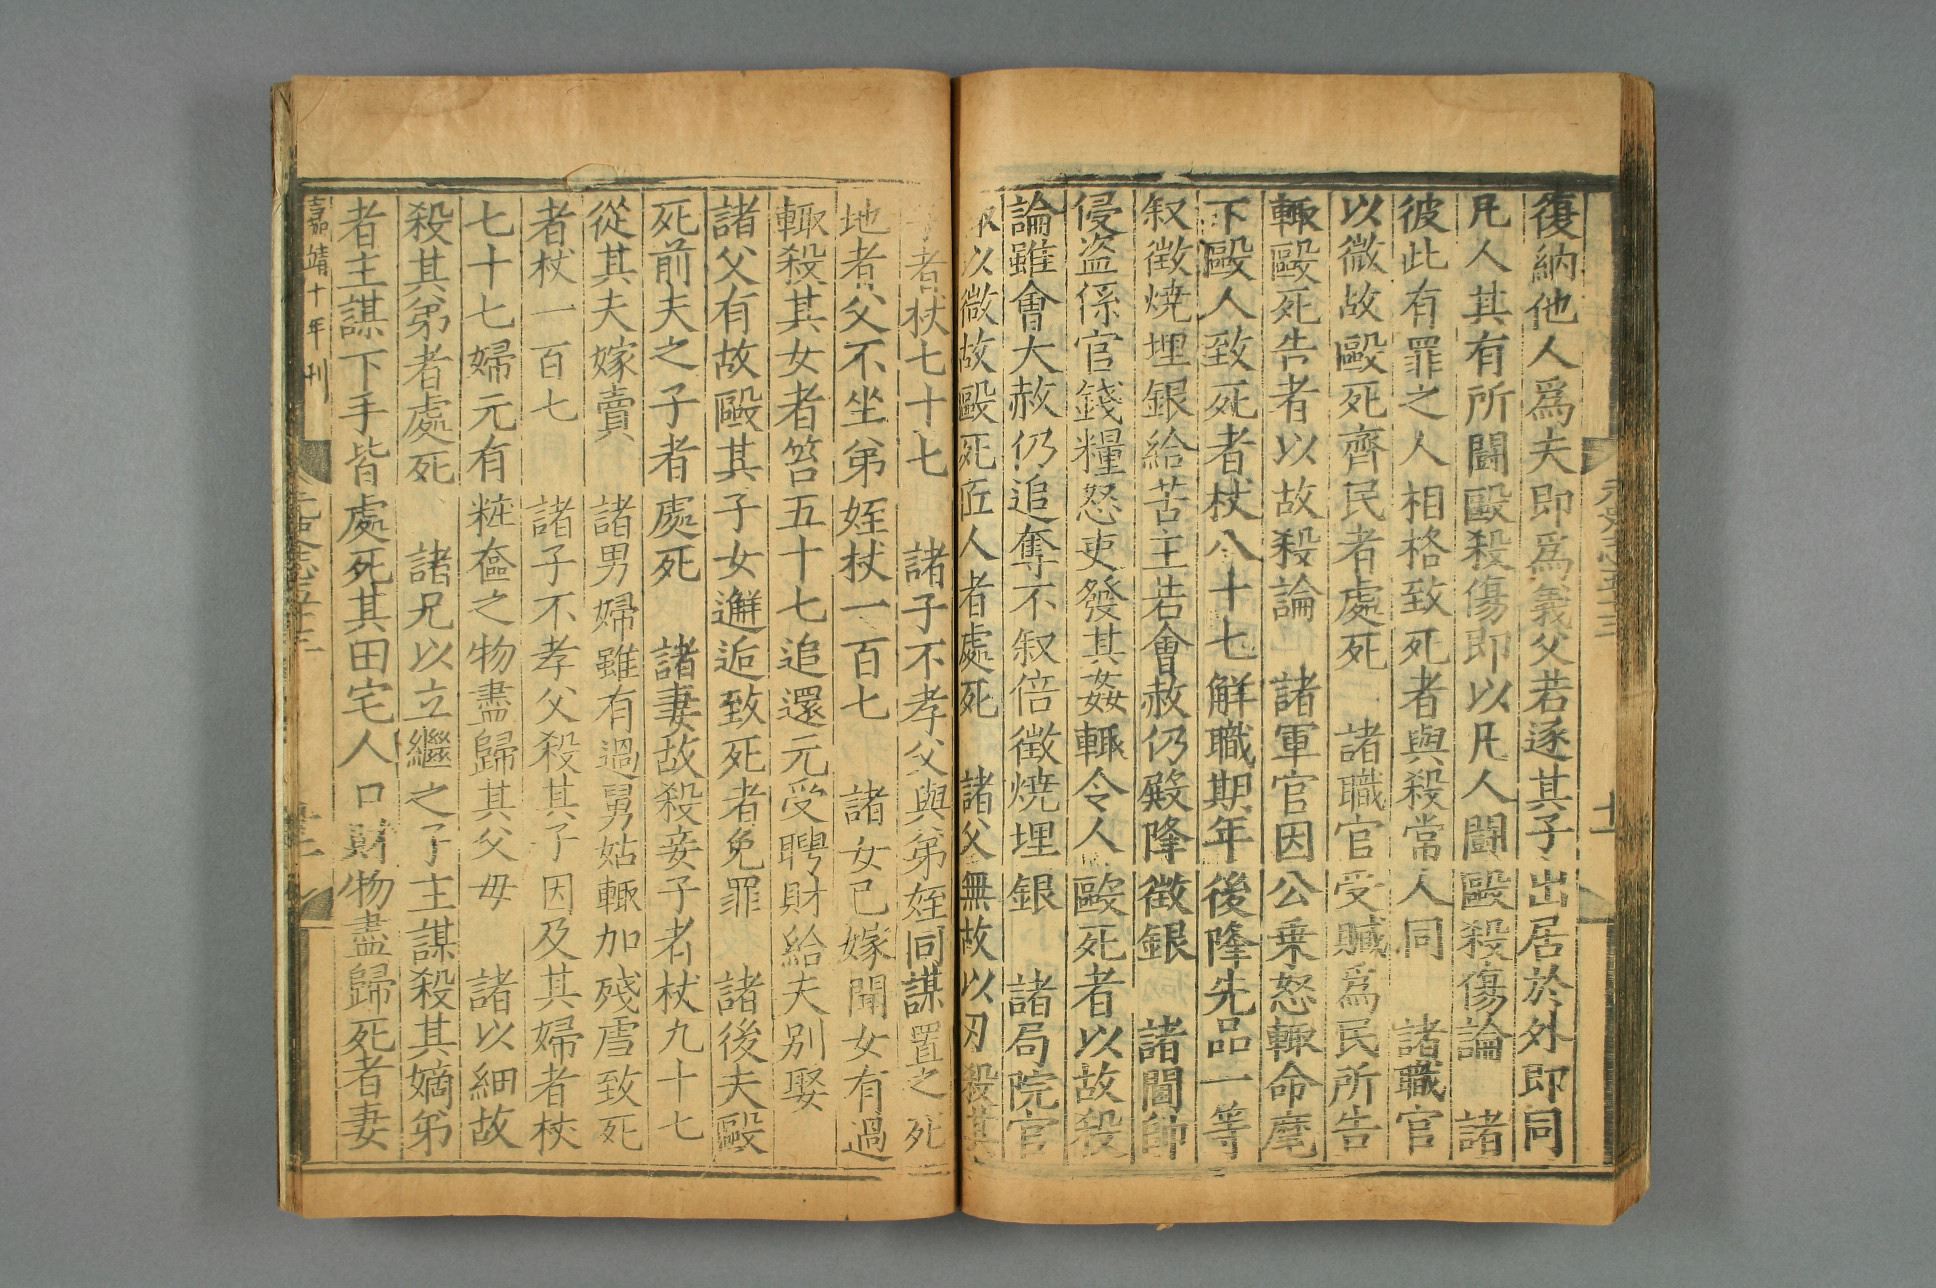 復納他人爲夫即爲義父若逐其子出居於外即同
凡人其有所鬭毆殺傷即以凡人鬭毆殺傷論 諸
彼此有罪之人相格致死者與殺常人同 諸職官
以微故毆死齊民者處死 諸職官受贓爲民所告
輒毆死告者以故殺論 諸軍官因公乗怒輒命麾
下毆人致死者杖八十七解職期年後降先品一等
叙徵燒埋銀給苦主若會赦仍殿降徵銀 諸閫帥
侵盗係官錢糧怒吏發其姦輒令人毆死者以故殺
論雖會大赦仍追奪不叙倍徵燒埋銀 諸局院官
輒以微故毆死匠人者處死 諸父無故以刃殺其
子者杖七十七 諸子不孝父與弟姪同謀置之死
地者父不坐弟姪杖一百七 諸女已嫁聞女有過
輒殺其女者笞五十七追還元受聘財給夫別娶
諸父有故毆其子女邂逅致死者免罪 諸後夫毆
死前夫之子者處死 諸妻故殺妾子者杖九十七
從其夫嫁賣 諸男婦雖有過舅姑輒加殘虐致死
者杖一百七 諸子不孝父殺其子因及其婦者杖
七十七婦元有粧奩之物盡歸其父母 諸以細故
殺其弟者處死 諸兄以立繼之子主謀殺其嫡弟
者主謀下手皆處死其田宅人口財物盡歸死者妻
嘉靖十年刊 元史志五十三